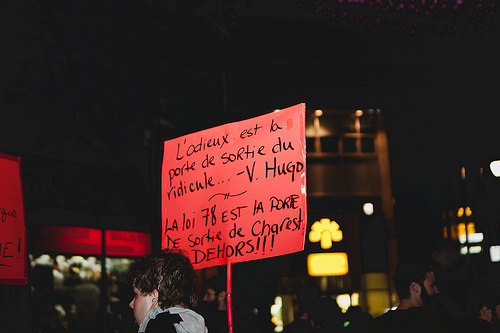 L'odieux est la
porte de sortie du
ridicule... -V. Hugo
LA loi 78 EST lA PORTE
DE Sortie de Charest
DEHORS!!!
E!